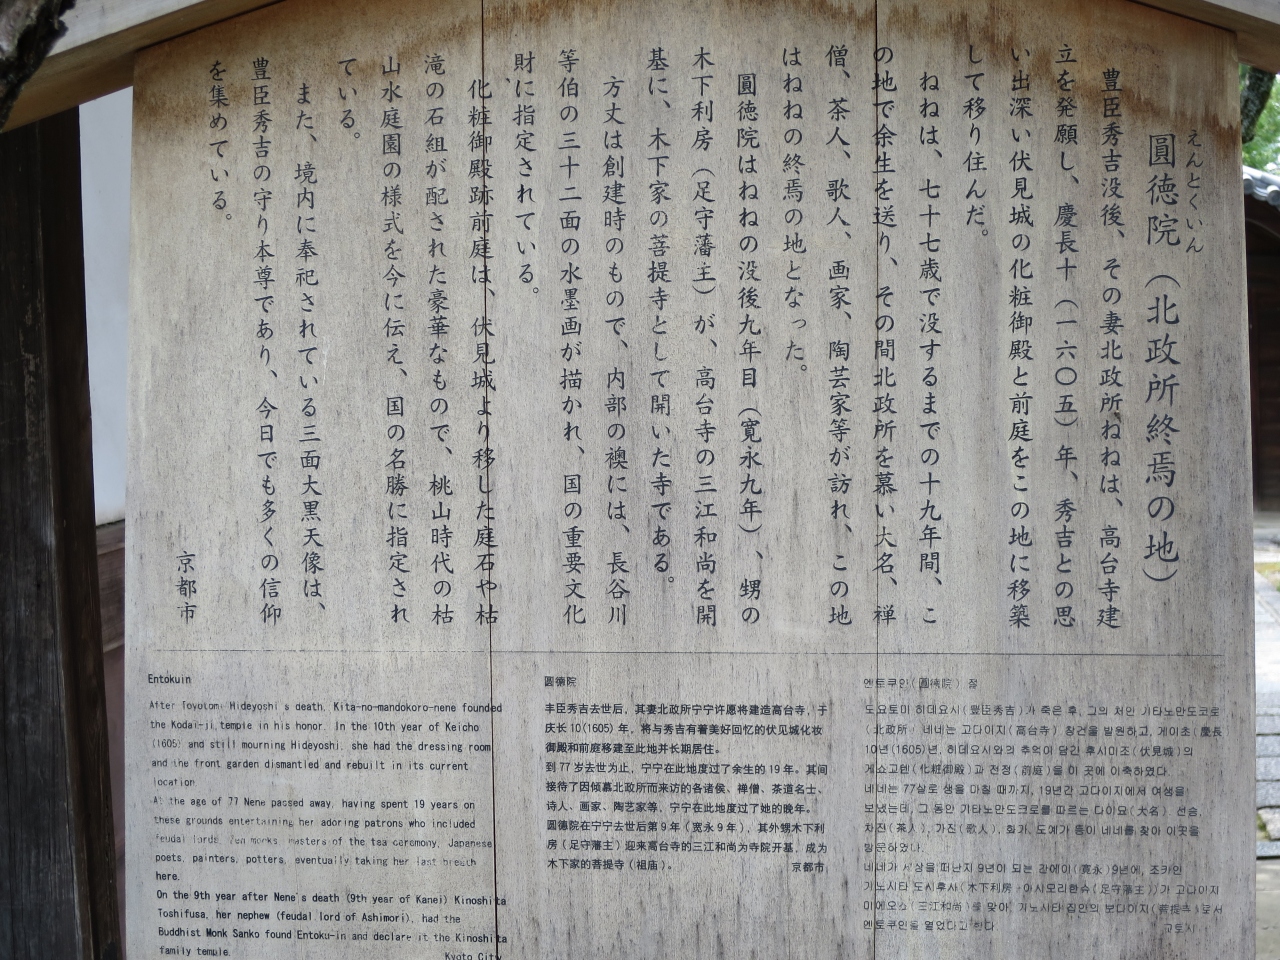 えんとくいん
圓徳院（北政所終焉の地）
豊臣秀吉没後、その妻北政所ねねは、高台寺建
立を発願し、慶長十（一六〇五）年、秀吉との思
い出深い伏見城の化粧御殿と前庭をこの地に移築
して移り住んだ。
ねねは、七十七歳で没するまでの十九年間、こ
の地で余生を送り、その間北政所を慕い大名、禅
僧、茶人、歌人、画家、陶芸家等が訪れ、この地
はねねの終焉の地となった。
圓徳院はねねの没後九年目（寛永九年）、甥の
木下利房（足守藩主）が、高台寺の三江和尚を開
基に、木下家の菩提寺として開いた寺である。
方丈は創建時のもので、内部の襖には、長谷川
等伯の三十二面の水墨画が描かれ、国の重要文化
財に指定されている。
化粧御殿跡前庭は、伏見城より移した庭石や枯
滝の石組が配された豪華なもので、桃山時代の枯
山水庭園の様式を今に伝え、国の名勝に指定され
ている。
また、境内に奉祀されている三面大黒天像は、
豊臣秀吉の守り本尊であり、今日でも多くの信仰
を集めている。
京都市
Entokuin
After Toyotomi Hideyoshi's death, Kita-no-mandokoro-nene founded
the Kodai-ji temple in his honor. In the 10th year of Keicho
(1605) and still mourning Hideyoshi, she had the dressing room
and the front garden dismantled and rebuilt in its current
location.
At the age of 77 Nene passed away, having spent 19 years on
these grounds entertaining her adoring patrons who included
feudal lords, Zen monks, masters of the tea ceremony, Japanese
poets, painters, potters, eventually taking her last breath
here.
On the 9th year after Nene's death (9th year of Kanei) Kinoshita
Toshifusa, her nephew (feudal lord of Ashimori), had the
Buddhist Monk Sanko found Entoku-in and declare it the Kinoshita
family temple.
Kyoto City
圓德院
丰臣秀吉去世后，其妻北政所宁宁许愿将建造高台寺，于
庆长10(1605) 年，将与秀吉有着美好回忆的伏见城化妆
御殿和前庭移建至此地并长期居住。
到77岁去世为止，宁宁在此地度过了余生的19年。其间
接待了因倾慕北政所而来访的各诸侯、禅僧、茶道名士、
诗人、画家、陶艺家等，宁宁在此地度过了她的晚年。
圆德院在宁宁去世后第9年（宽永9年），其外甥木下利
房（足守藩主）迎来高台寺的三江和尚为寺院开基，成为
木下家的菩提寺（祖庙）。
京都市
엔토쿠인(圓徳院) 절
도요토미 히데요시(豊臣秀吉)가 죽은 후, 그의 처인 기타노만도코로
(北政所) 네네는 고다이지(高台寺) 창건을 발원하고, 게이초(慶長
10년(1605)년, 히데요시와의 추억이 담긴 후시미조(伏見城)의
게쇼고텐(化粧御殿)과 전정(前庭)을 이 곳에 이축하였다.
네네는 77살로 생을 마칠 때까지, 19년간 고다이지에서 여생을
보냈는데, 그 동안 기타노만도코로를 따르는 다이묘(大名) 선승,
차진(茶人), 가진(歌人), 화가, 도예가 등이 네네를 찾아 이곳을
방문하였다.
네네가 세상을 떠난지 9년이 되는 간에이(寛永)9년에, 조카인
기노시타 도시후사(木下利房·아시모리한슈(足守藩主))가 고다이지
미에오쇼(三江和尚)를 맞아, 기노시타 집안의 보다이지(菩提寺)로서
엔토쿠인을 열었다고 한다.
교토시